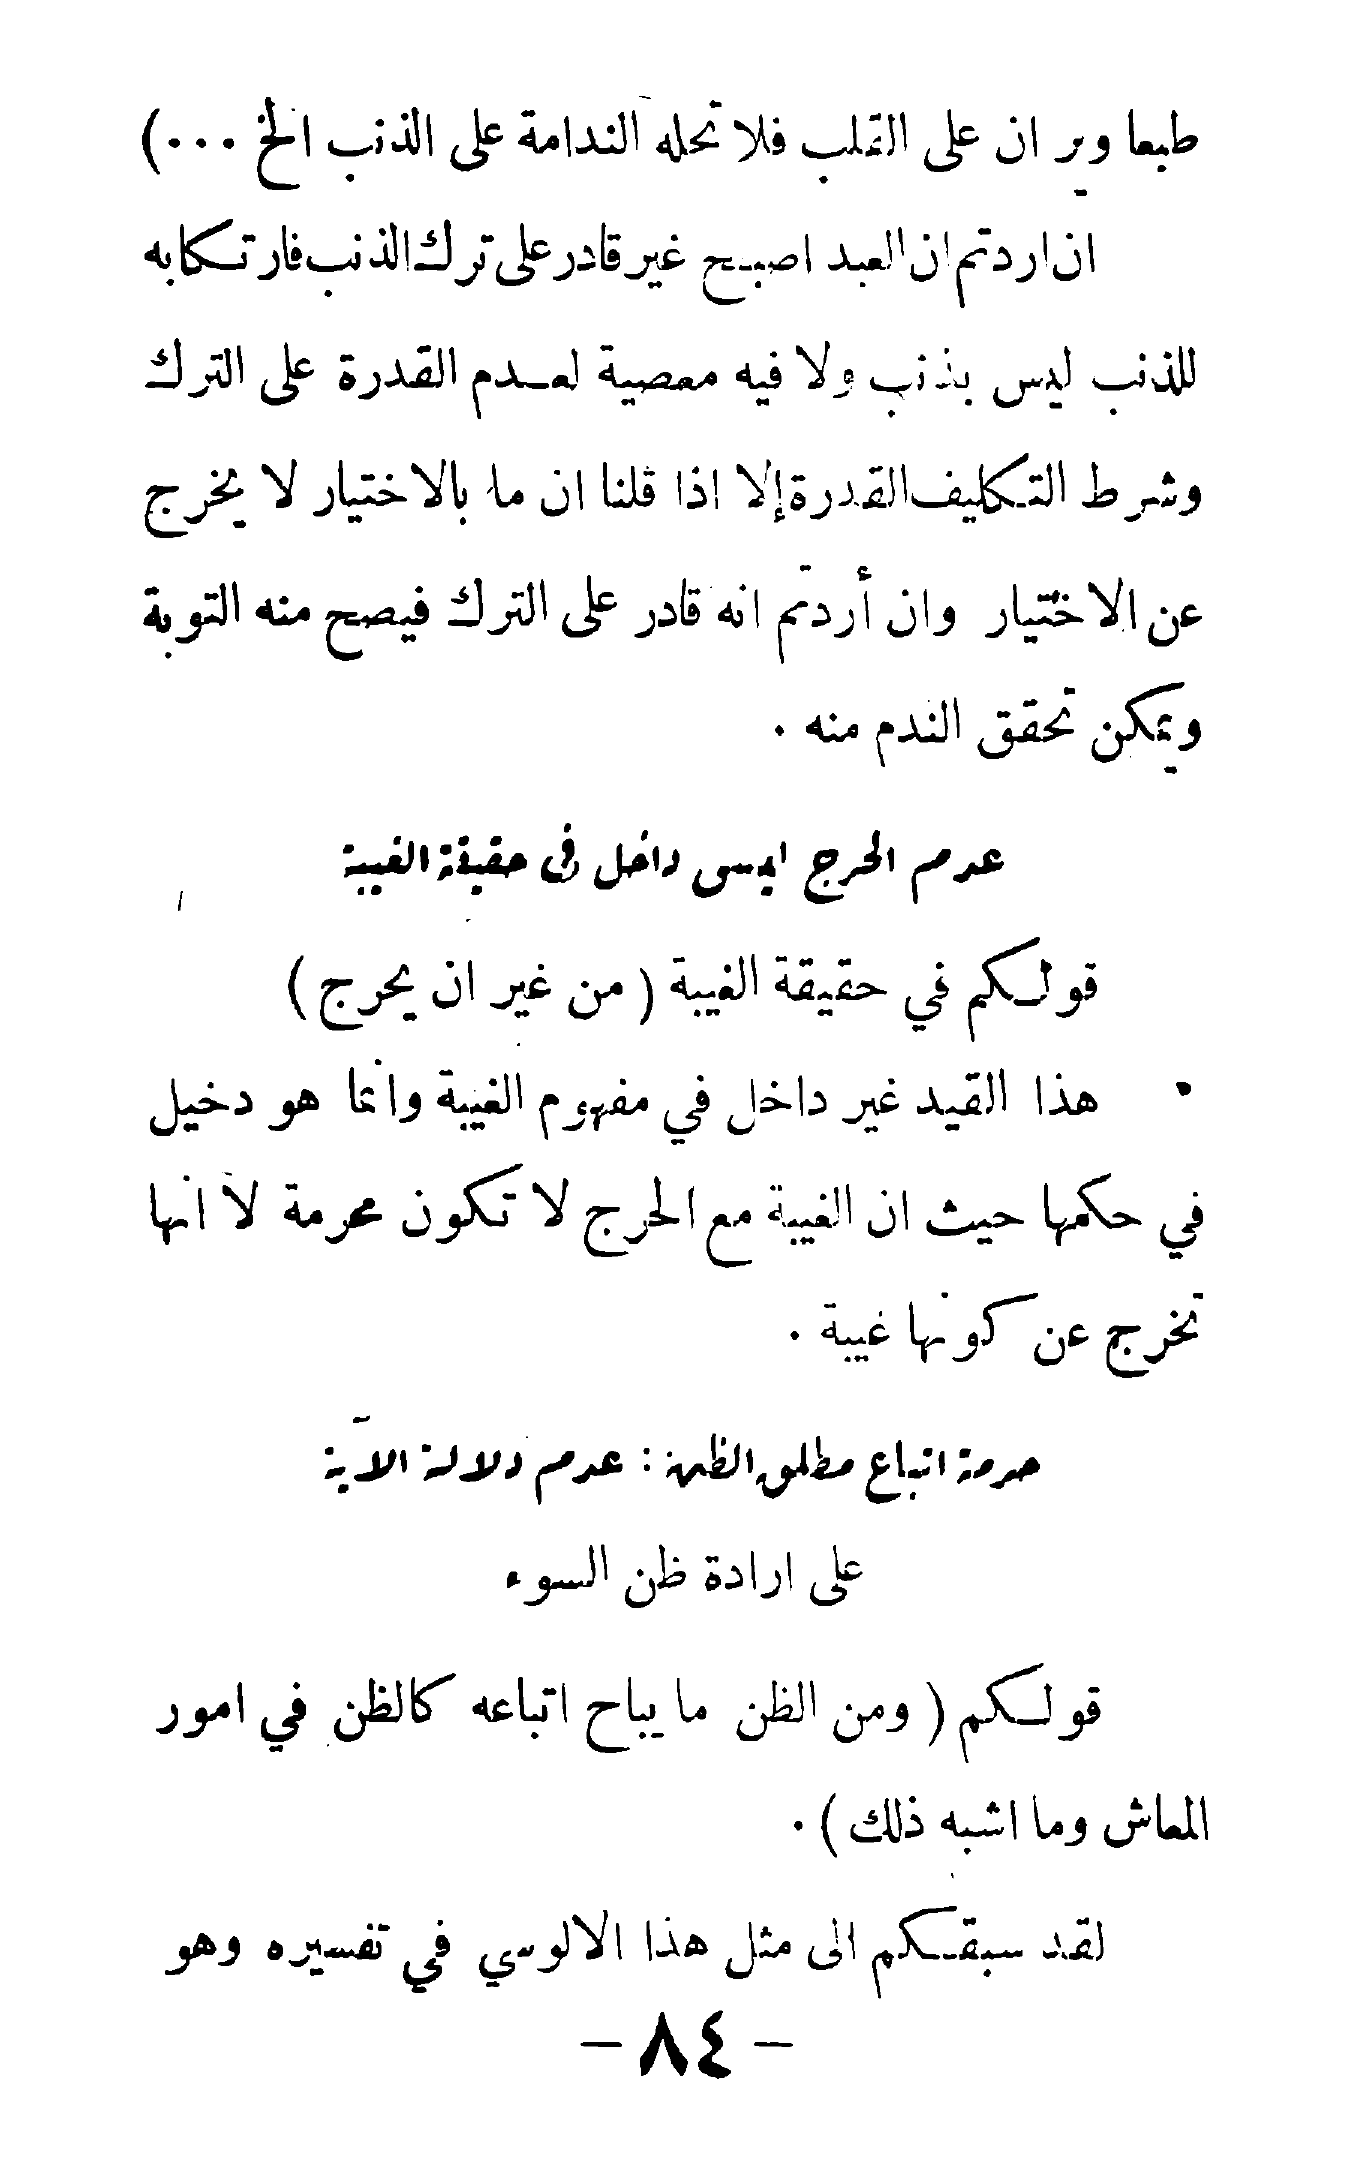 طبعا ويران على القلب فلا تحله الندامة على الذنب الخ ...)
ان اردتم ان العبد اصبح غير قادر على ترك الذنب فارتكابه
للذنب ليس بذنب ولا فيه معصية لعدم القدرة على الترك
وشرط التكليف القدرة إلا اذا قلنا ان ما بالاختيار لا يخرج
عن الاختيار وان أردتم انه قادر على الترك فيصح منه التوبة
ويمكن تحقق الندم منه .
عدم الحرج ليس داخل في حقيقة الغيبة
قولكم في حقيقة الغيبة ( من غير ان يحرج )
• هذا القيد غير داخل في مفهوم الغيبة وانما هو دخيل
في حكمها حيث ان الغيبة مع الحرج لا تكون محرمة لا انها
تخرج عن كونها غيبة .
حرمة اتباع مطلق الظن : عدم دلالة الآية
على ارادة ظن السوء
قولكم ( ومن الظن ما يباح اتباعه كالظن في امور
المعاش وما اشبه ذلك ) .
لقد سبقكم الى مثل هذا الالوسي في تفسيره وهو
- ٨٤ -